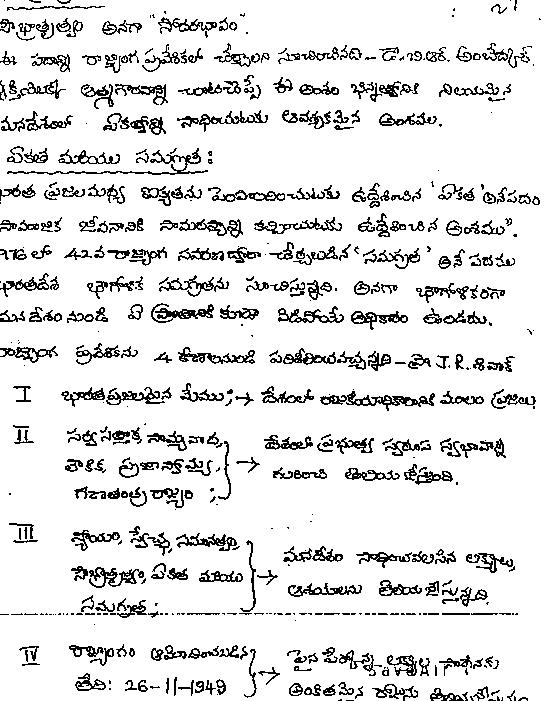 సౌభ్రాతృత్వం అనగా "సోదరభావం".
ఈ పదాన్ని రాజ్యాంగ ప్రవేశికలో చేర్చాలని సూచించినది - డా. బి.ఆర్. అంబేద్కర్.
ఆత్మగౌరవాన్ని చాటిచెప్పే ఈ అంశం భిన్నత్వానికి నిలయమైన
మనదేశంలో ఏకత్వాన్ని సాధించుటకు ఆవశ్యకమైన అంశము.
ఏకత మరియు సమగ్రత :
భారత ప్రజల మధ్య ఐక్యతను పెంపొందించుటకు ఉద్దేశించిన 'ఏకత' అనే పదం
సామాజిక జీవనానికి సామరస్యాన్ని కల్పించుటకు ఉద్దేశించిన అంశము".
1976 లో 42వ రాజ్యాంగ సవరణ ద్వారా చేర్చబడిన 'సమగ్రత' అనే పదము
భారతదేశ భౌగోళిక సమగ్రతను సూచిస్తున్నది. అనగా భౌగోళికంగా
మన దేశం నుండి ఏ ప్రాంతానికి కూడా విడిపోయే అధికారం ఉండదు.
రాజ్యాంగ ప్రవేశికను 4 కోణాలనుండి పరిశీలించవచ్చున్నది - J.R. శివాక్
I భారత ప్రజలమైన మేము ; → దేశంలో రాజకీయాధికారానికి మూలం ప్రజలు
II సర్వసత్తాక సామ్యవాద, లౌకిక, ప్రజాస్వామ్య, గణతంత్ర రాజ్యం ; → దేశంలో ప్రభుత్వ స్వరూప స్వభావాన్ని గురించి తెలియజేస్తుంది.
III న్యాయం, స్వేచ్ఛ, సమానత్వం, సౌభ్రాతృత్వం, ఏకత మరియు సమగ్రత ; → మనదేశం సాధించవలసిన లక్ష్యాలు, ఆశయాలను తెలియజేస్తున్నది.
IV రాజ్యాంగం ఆమోదించబడిన తేది: 26-11-1949 → పైన పేర్కొన్న లక్ష్యాల